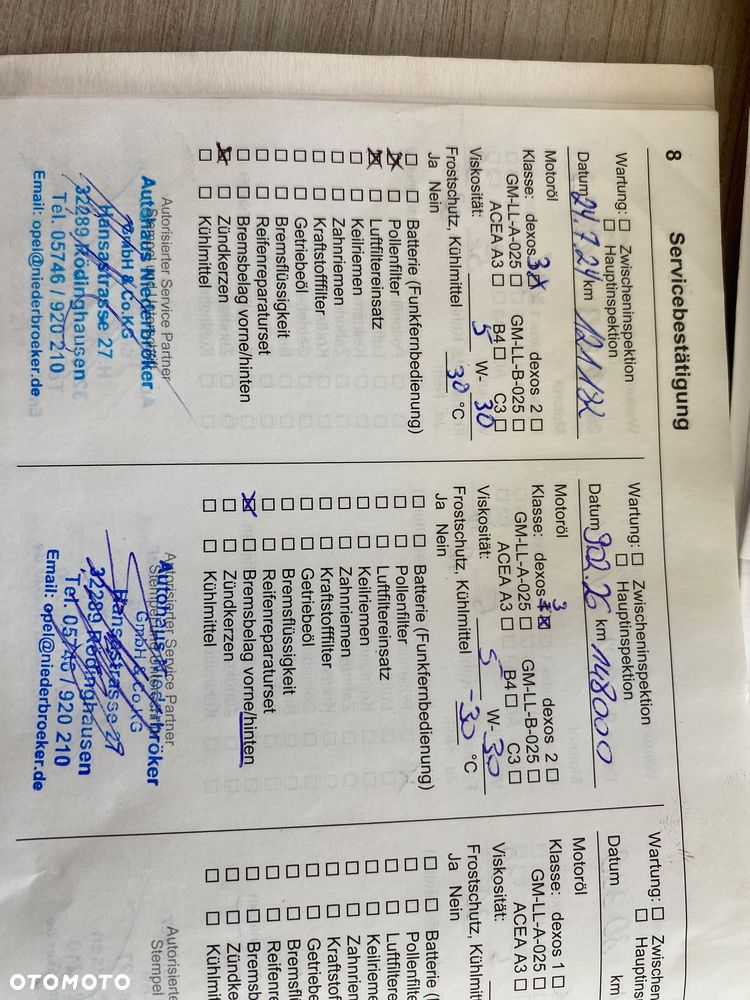 8
Servicebestätigung
Wartung: Zwischeninspektion
Hauptinspektion
Datum 24.7.24 km 121182
Motoröl
Klasse: dexos 3 dexos 2
GM-LL-A-025 GM-LL-B-025
ACEA A3 B4 C3
Viskosität: 5 W- 30
Frostschutz, Kühlmittel 30 °C
Ja Nein
Batterie (Funkfernbedienung)
Pollenfilter
Luftfiltereinsatz
Keilriemen
Zahnriemen
Kraftstofffilter
Getriebeöl
Bremsflüssigkeit
Reifenreparaturset
Bremsbelag vorne/hinten
Zündkerzen
Kühlmittel
Autorisierter Service Partner
Autohaus Niederbröker
GmbH & Co.KG
Hansastrasse 27
32289 Rödinghausen
Tel. 05746 / 920 210
Email: opel@niederbroeker.de
Wartung: Zwischeninspektion
Hauptinspektion
Datum km 148000
Motoröl
Klasse: dexos 3 dexos 2
GM-LL-A-025 GM-LL-B-025
ACEA A3 B4 C3
Viskosität: 5 W- 30
Frostschutz, Kühlmittel -30 °C
Ja Nein
Batterie (Funkfernbedienung)
Pollenfilter
Luftfiltereinsatz
Keilriemen
Zahnriemen
Kraftstofffilter
Getriebeöl
Bremsflüssigkeit
Reifenreparaturset
Bremsbelag vorne/hinten
Zündkerzen
Kühlmittel
Autorisierter Service Partner
Autohaus Niederbröker
GmbH & Co.KG
Hansastrasse 27
32289 Rödinghausen
Tel. 05746 / 920 210
Email: opel@niederbroeker.de
Wartung: Zwischen
Hauptins
Datum km
Motoröl
Klasse: dexos 1
GM-LL-A-025
ACEA A3
Viskosität:
Frostschutz, Kühlmitt
Ja Nein
Batterie (
Pollenfilte
Luftfiltere
Keilrieme
Zahnrieme
Kraftstof
Getriebe
Bremsfl
Reifenre
Bremsb
Zündke
Kühlmit
Autorisierte
Stempel
OTOMOTO